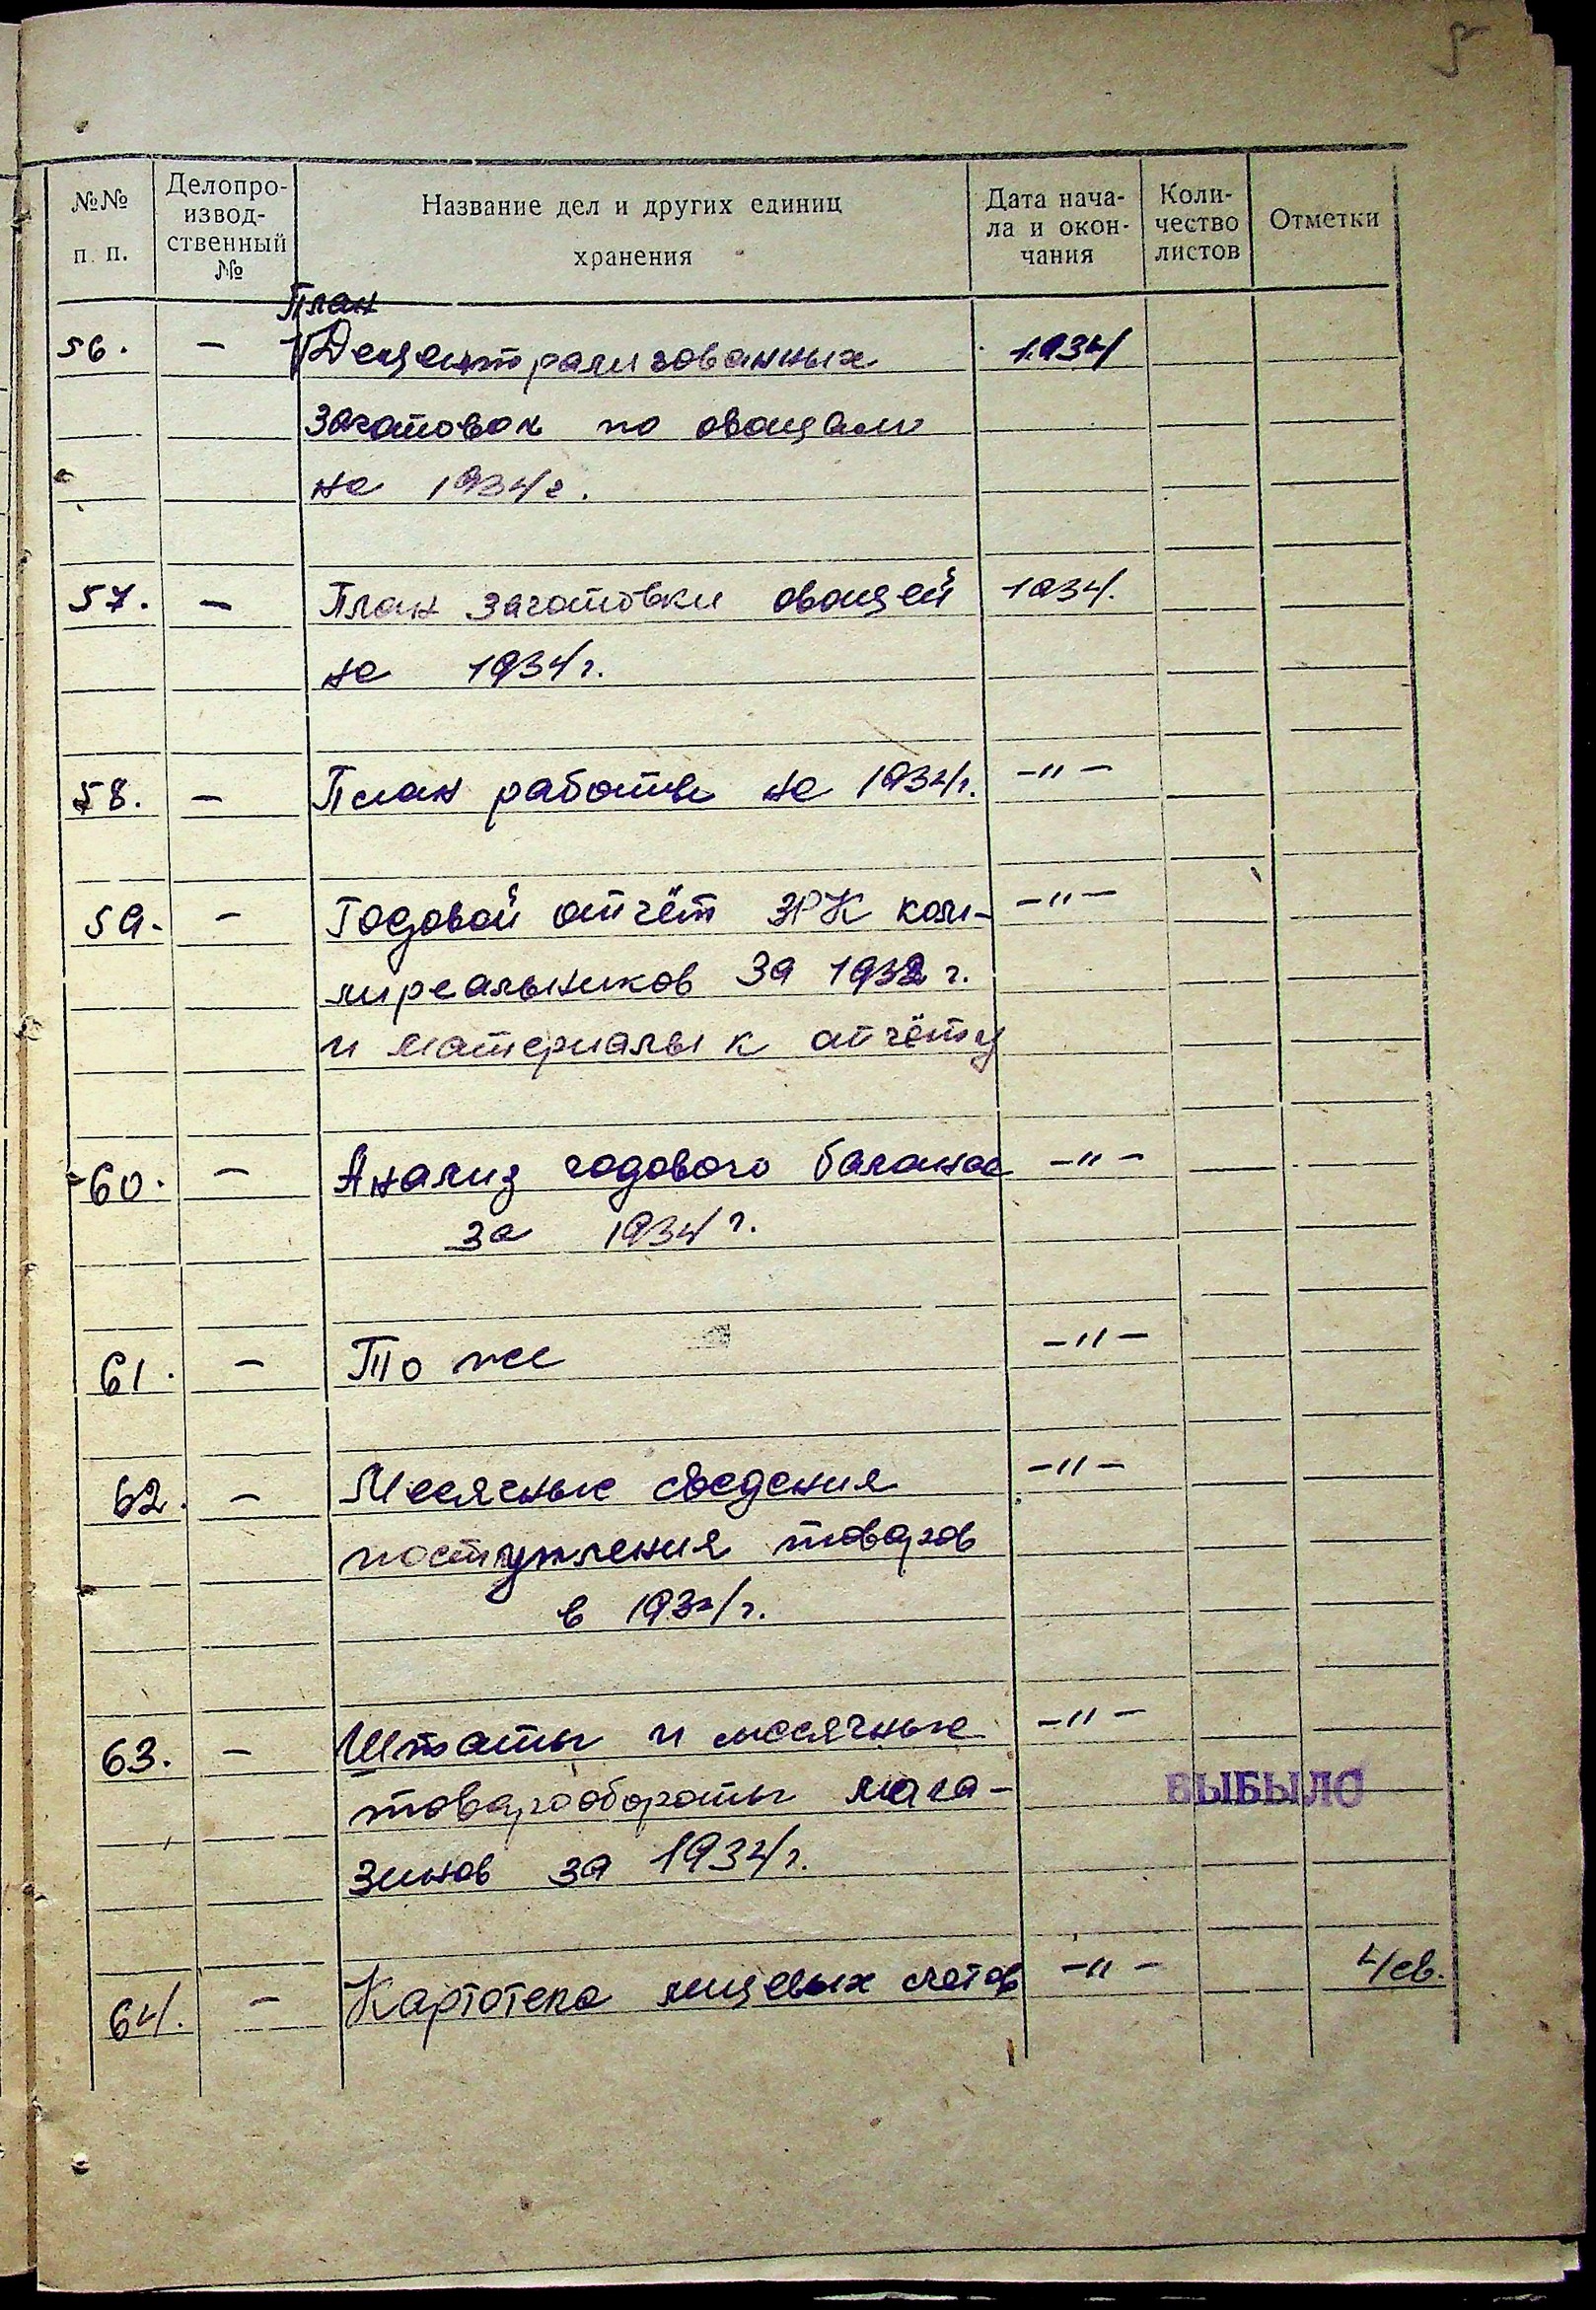 №№ п. п.
Делопро-
извод-
ственный
№
Название дел и других единиц
хранения
Дата нача-
ла и окон-
чания
Коли-
чество
листов
Отметки
План
56. – Децентрализованных 1934
заготовок по овощам
на 1934 г.
57. – План заготовки овощей 1934.
на 1934 г.
58. – План работы на 1934 г. –"–
59. – Годовой отчёт ЗРК –"–
за 1932 г.
и материалы к отчёту
60. – Анализ годового баланса –"–
за 1934 г.
61. – То же –"–
62. – Месячные сведения –"–
поступления товаров
в 1934 г.
63. – Штаты и месячные –"–
товарообороты мага-
зинов за 1934 г.
ВЫБЫЛО
64. – Картотека лицевых счетов –"– 4 св.